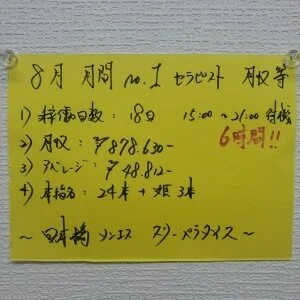 8月 月間 no.1 セラピスト 月収等
1) 稼働日数: 18日 15:00〜21:00 待機
6時間!!
2) 月収: ¥878.630-
3) アベレージ: ¥48.812-
4) 本指名: 24本 + 姫 3本
〜日本橋 メンエス スリーパラダイス〜